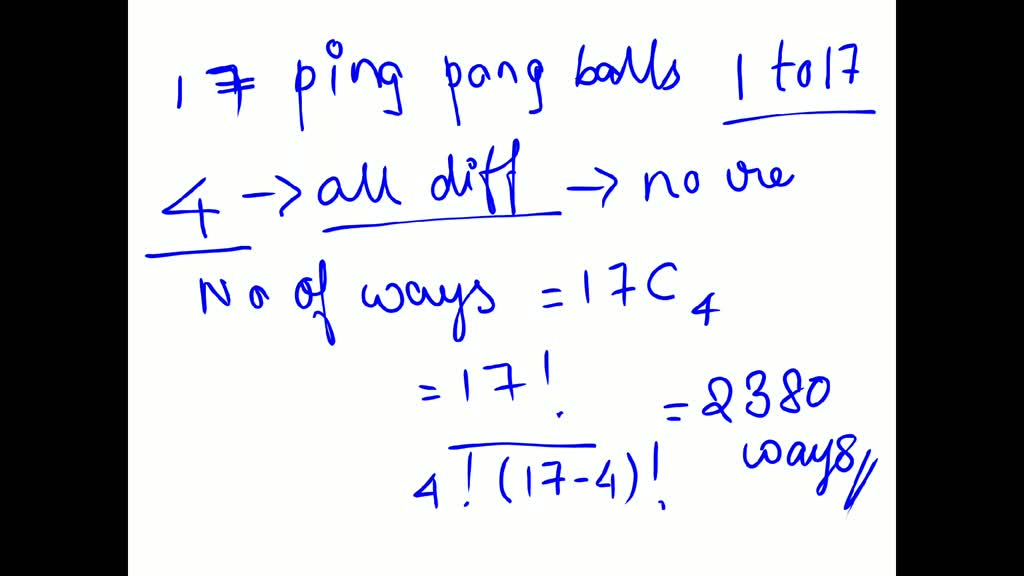 17 ping pang balls 1 to 17
4 → all diff → no
No of ways = 17C4
= 17! / 4!(17-4)! = 2380 ways